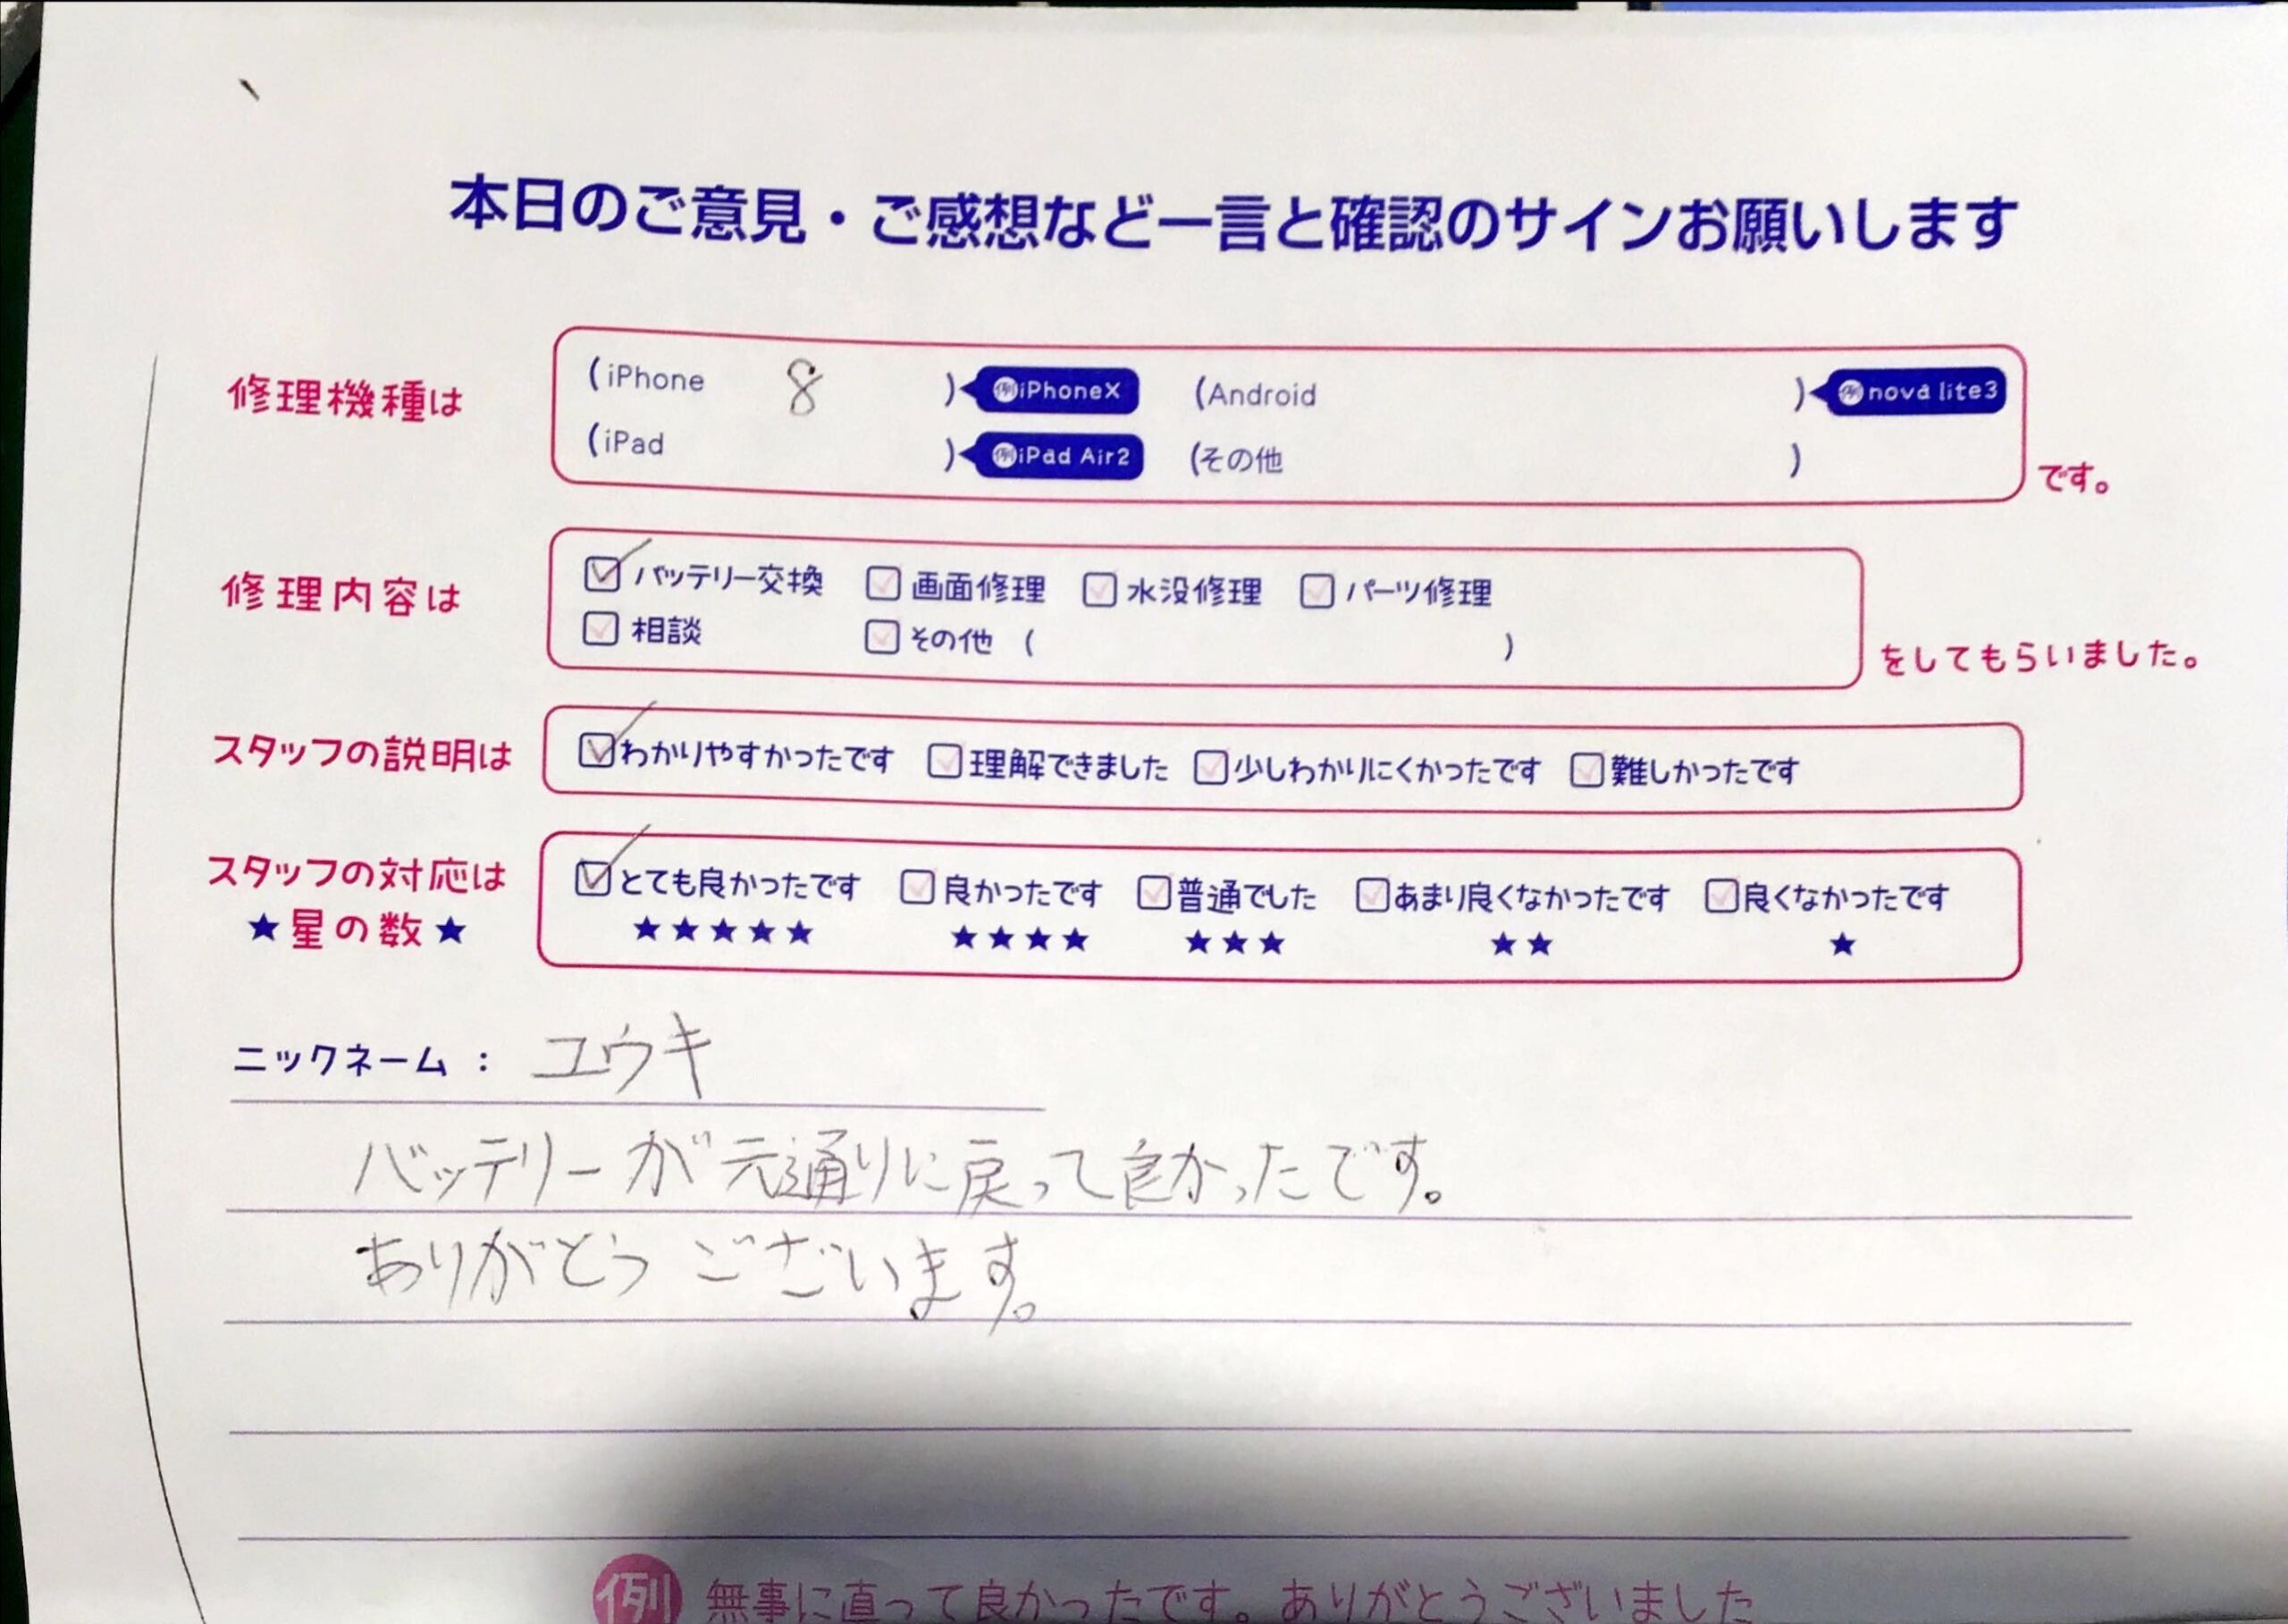 本日のご意見・ご感想など一言と確認のサインお願いします
修理機種は (iPhone 8 ) 例iPhoneX (Android ) 例nova lite3
(iPad ) 例iPad Air2 (その他 ) です。
修理内容は ☑バッテリー交換 ☐画面修理 ☐水没修理 ☐パーツ修理
☐相談 ☐その他 ( ) をしてもらいました。
スタッフの説明は ☑わかりやすかったです ☐理解できました ☐少しわかりにくかったです ☐難しかったです
スタッフの対応は ☑とても良かったです ☐良かったです ☐普通でした ☐あまり良くなかったです ☐良くなかったです
★星の数★ ★★★★★ ★★★★ ★★★ ★★ ★
ニックネーム : ユウキ
バッテリーが元通りに戻って良かったです。
ありがとうございます。
例 無事に直って良かったです。ありがとうございました